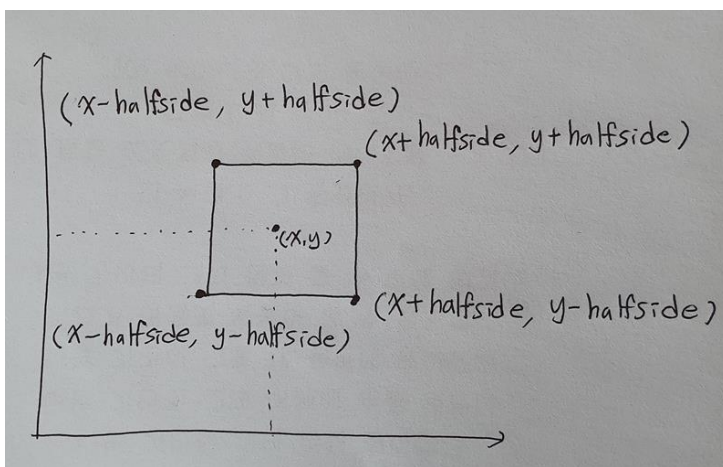 (x-halfside, y+halfside)
(x+halfside, y+halfside)
(x,y)
(x+halfside, y-halfside)
(x-halfside, y-halfside)